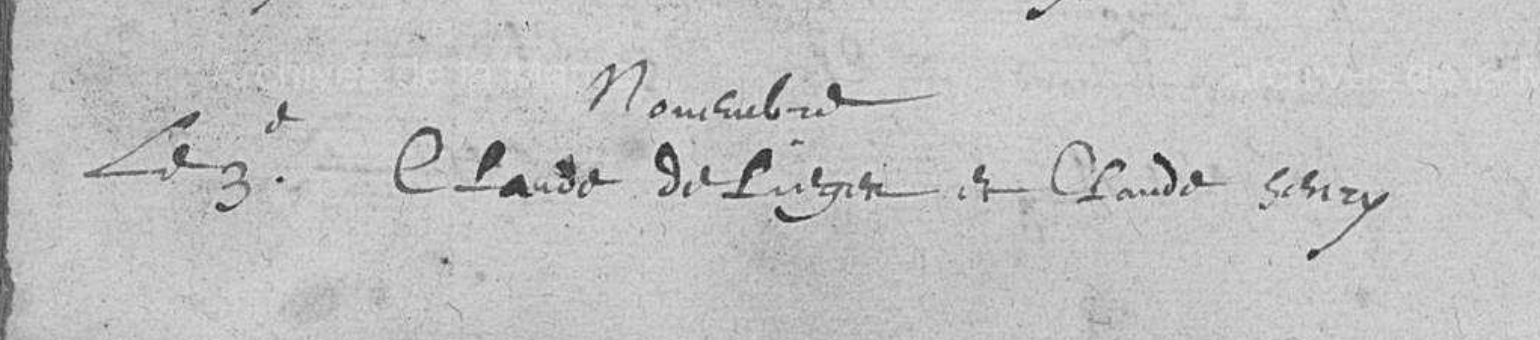 Nouembre
Le 3.e Claude de Liegen et Claude henry